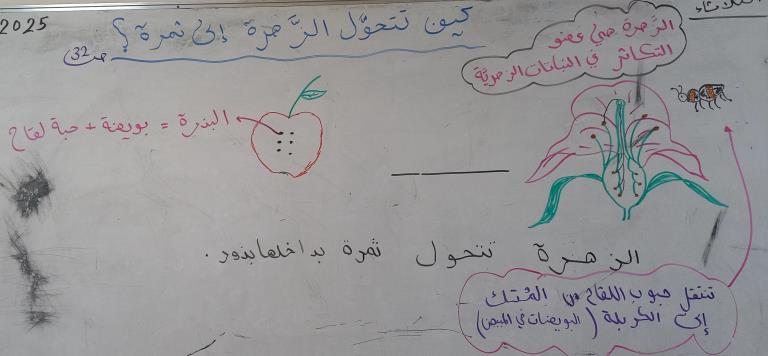 الثلاثاء
2025
كيف تتحوّل الزَّهرة إلى ثمرة؟
ص32
الزَّهرة هي عضو
التكاثر في النباتات الزهريّة
البذرة = بويضة + حبة لقاح
الزهرة تتحول ثمرة بداخلها بذور.
تنتقل حبوب اللقاح من المُتك
إلى الكربلة (البويضات في المبيض)